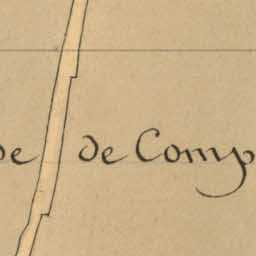 de de Comp